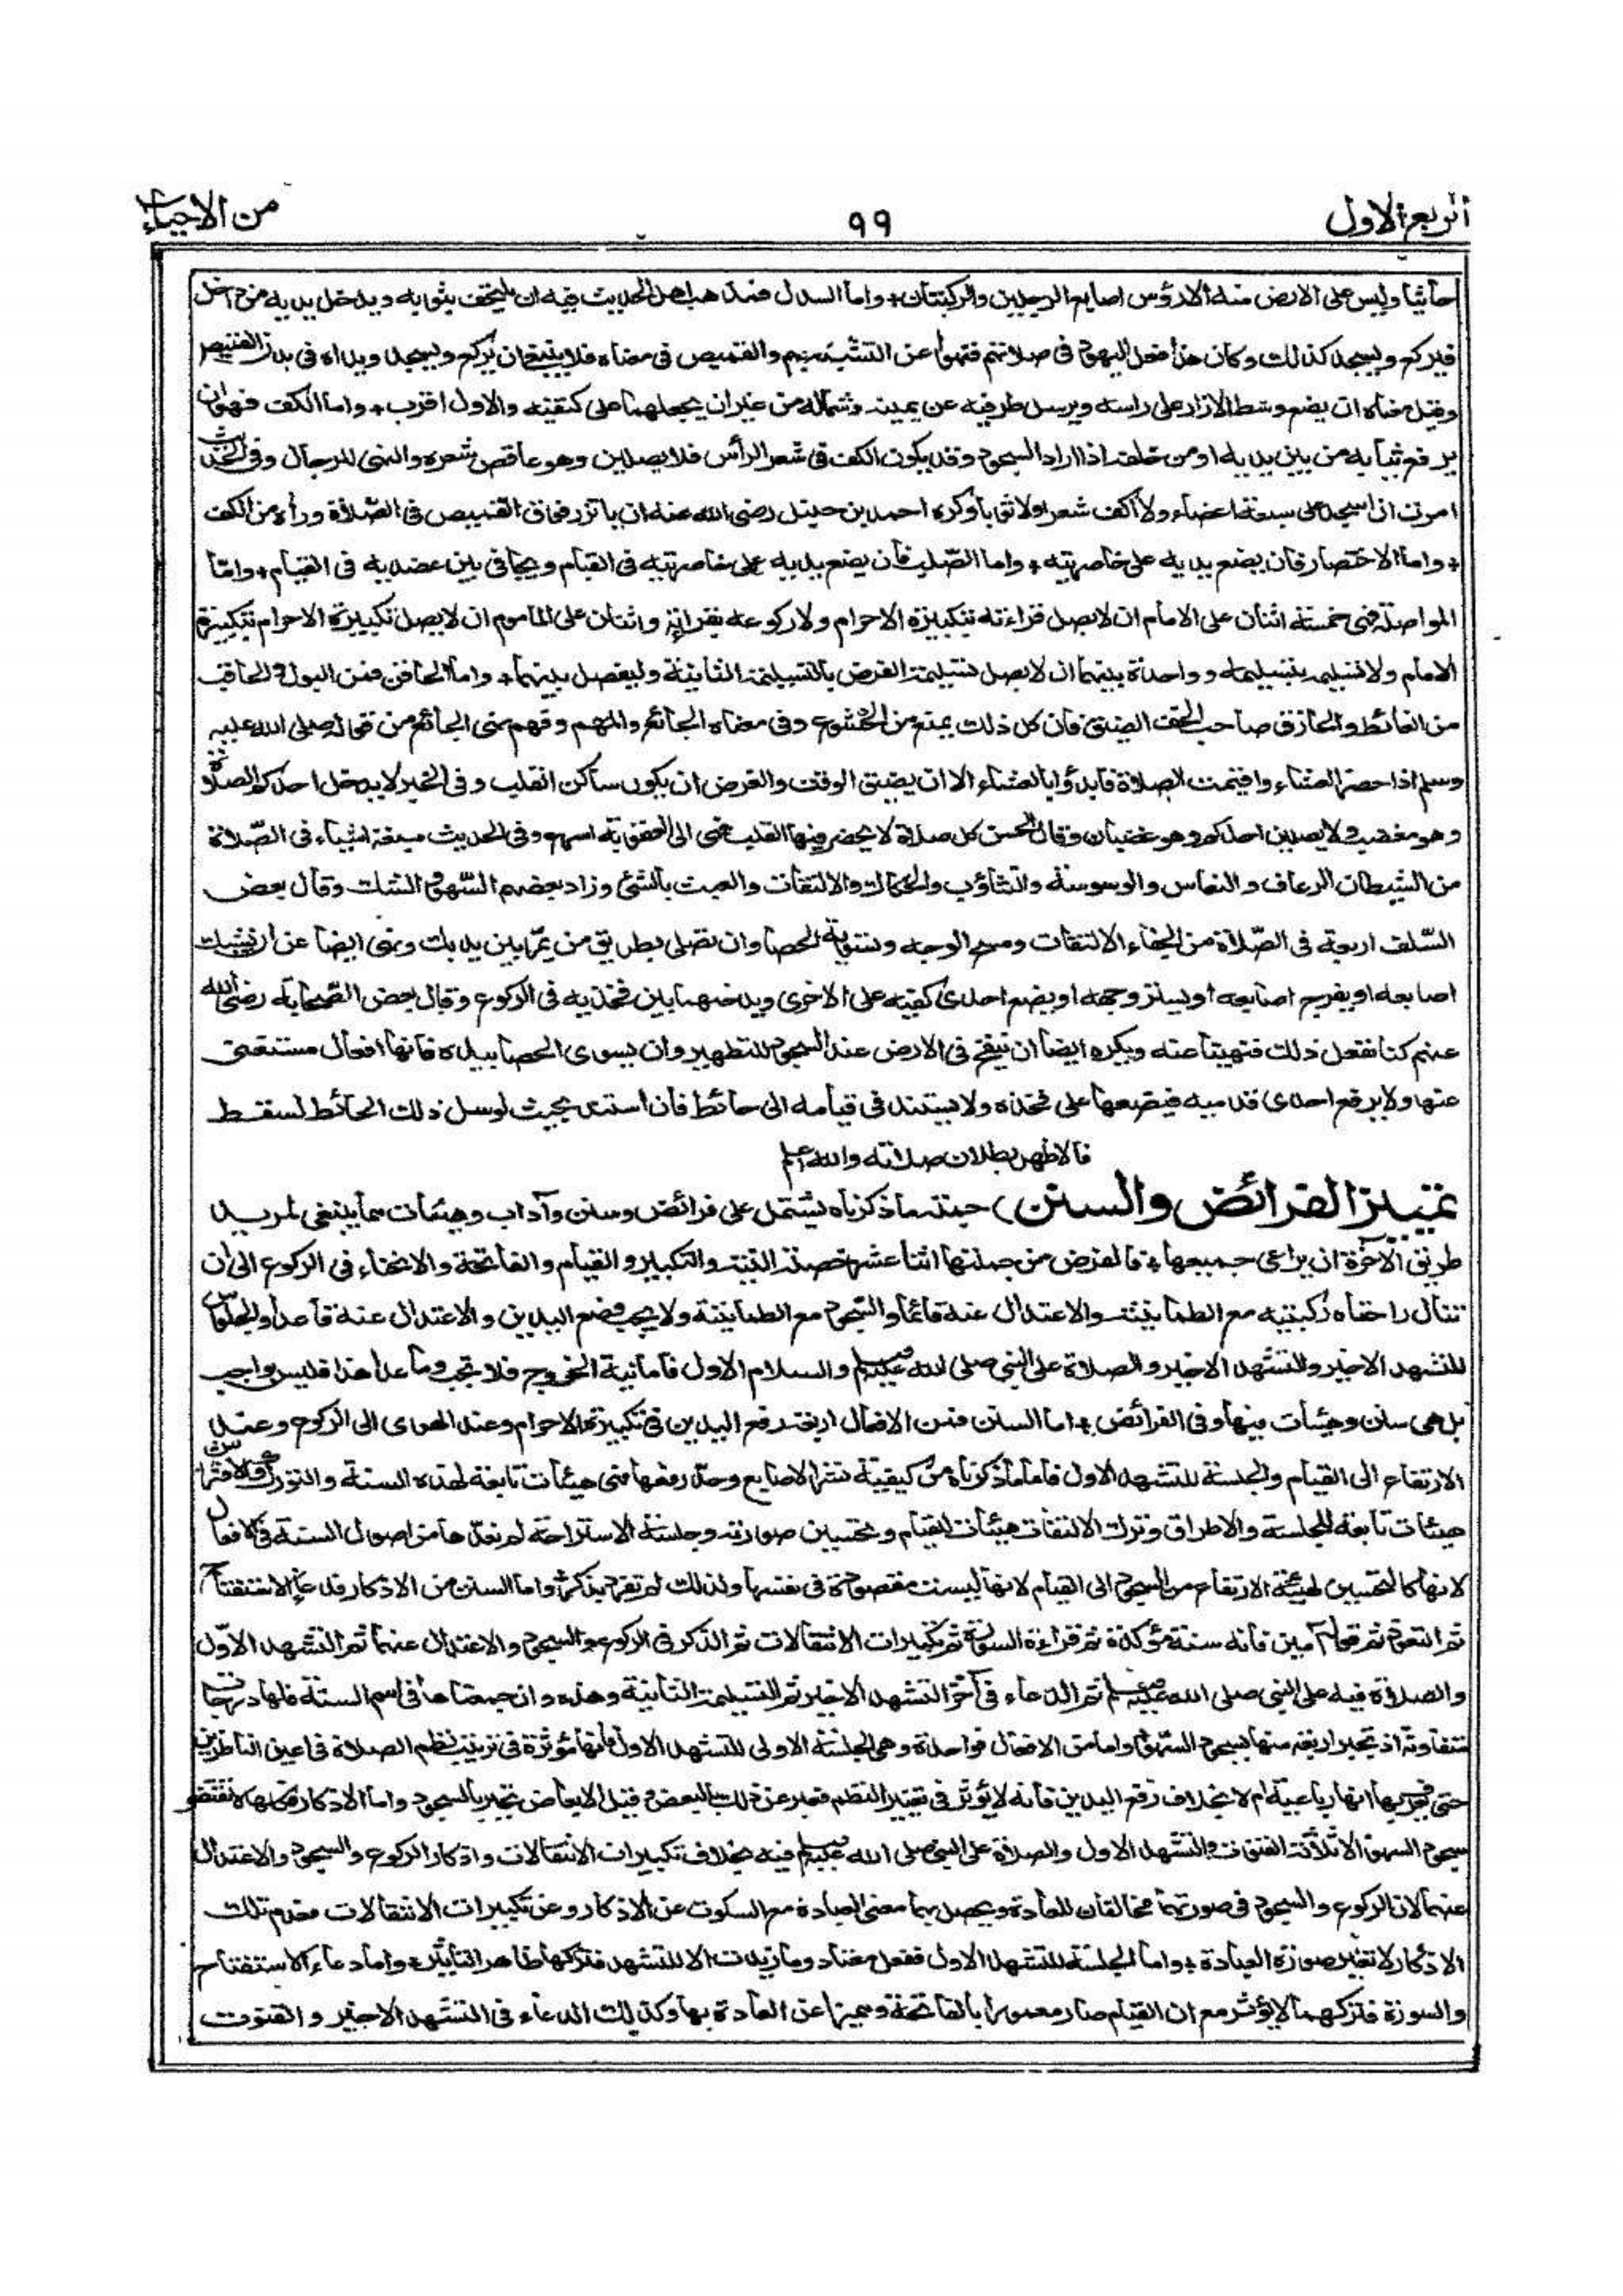 الربع الاول
٩٩
من الاحياء
جاثيا وليس على الارض منه الا رؤس اصابع الرجلين والركبتان + واما السدل فمذهب اهل الحديث فيه ان يلتحف بثوبه ويدخل يديه من داخل
فيركع ويسجد كذلك وكان هذا فعل اليهود فى صلاتهم فنهوا عن التشبه بهم والقميص فى معناه فلا ينبغى ان يركع ويسجد ويداه فى بدن القميص
وقيل معناه ان يضع وسط الازار على راسه ويرسل طرفيه عن يمينه وشماله من غير ان يجعلهما على كتفيه والاول اقرب + واما الكف فهو ان
يرفع ثيابه من بين يديه او من خلفه اذا اراد السجود وقد يكون الكف فى شعر الرأس فلا يصلين وهو عاقص شعره والنهى للرجال وفى الحديث
امرت ان اسجد على سبعة اعضاء ولا اكف شعرا ولا ثوبا وكره احمد بن حنبل رضى الله عنه ان ياتزر فوق القميص فى الصلاة ورأه من الكف
+ واما الاختصار فان يضع يديه على خاصرتيه + واما الصلب فان يضع يديه على خاصرتيه فى القيام ويجافى بين عضديه فى القيام + واما
المواصلة فهى خمسة اثنان على الامام ان لا يصل قراءته بتكبيرة الاحرام ولا ركوعه بقراءته واثنان على المأموم ان لا يصل تكبيرة الاحرام بتكبيرة
الامام ولا تسليمه بتسليمه وواحدة بينهما ان لا يصل تسليمة الفرض بالتسليمة الثانية وليفصل بينهما + واما الحاقن فمن البول والحاقب
من الغائط والحازق صاحب الخف الضيق فان كل ذلك يمنع من الخشوع وفى معناه الجائع والمهتم وفهم نهى الجائع من قوله صلى الله عليه
وسلم اذا حضر العشاء واقيمت الصلاة فابدؤا بالعشاء الا ان يضيق الوقت والغرض ان يكون ساكن القلب وفى الخبر لا يدخل احدكم الصلاة
وهو مغضب ولا يصلين احدكم وهو غضبان وقال الحسن كل صلاة لا يحضر فيها القلب فهى الى العقوبة اسرع وفى الحديث سبعة اشياء فى الصلاة
من الشيطان الرعاف والنعاس والوسوسة والتثاؤب والحكاك والالتفات والعبث بالشئ وزاد بعضهم السهو والشك وقال بعض
السلف اربعة فى الصلاة من الجفاء الالتفات ومسح الوجه وتسوية الحصا وان تصلى بطريق من يمر بين يديك ونهى ايضا عن ان يشبك
اصابعه او يفرقع اصابعه او يستر وجهه او يضع احدى كفيه على الاخرى ويدخلهما بين فخذيه فى الركوع وقال بعض الصحابة رضى الله
عنهم كنا نفعل ذلك فنهينا عنه ويكره ايضا ان ينفخ فى الارض عند السجود للتطهير وان يسوى الحصا بيده فانها افعال مستغنى
عنها ولا يرفع احدى قدميه فيضعها على فخذه ولا يستند فى قيامه الى حائط فان استند بحيث لو سل ذلك الحائط لسقط
فالاظهر بطلان صلاته والله اعلم
تمييز الفرائض والسنن) جملة ما ذكرناه يشتمل على فرائض وسنن وآداب وهيئات مما ينبغى لمريد
طريق الآخرة ان يراعى جميعها + فالفرض من جملتها اثنا عشر خصلة النية والتكبير والقيام والفاتحة والانحناء فى الركوع الى ان
تنال راحتاه ركبتيه مع الطمانينة والاعتدال عنه قائما والسجود مع الطمانينة ولا يجب وضع اليدين والاعتدال عنه قاعدا والجلوس
للتشهد الاخير والتشهد الاخير والصلاة على النبى صلى الله عليه وسلم والسلام الاول فاما نية الخروج فلا تجب وما عدا هذا فليس بواجب
بل هى سنن وهيئات فيها وفى الفرائض + اما السنن فمن الافعال اربعة رفع اليدين فى تكبيرة الاحرام وعند الهوى الى الركوع وعند
الارتفاع الى القيام والجلسة للتشهد الاول فاما ما ذكرناه من كيفية نشر الاصابع وحد رفعها فهى هيئات تابعة لهذه السنة والتورك والافتراش
هيئات تابعة للجلسة والاطراق وترك الالتفات هيئات للقيام وتحسين صورته وجلسة الاستراحة لم نعدها من اصول السنة فى الافعال
لانها كالتحسين لهيئة الارتفاع من السجود الى القيام لانها ليست مقصودة فى نفسها ولذلك لم تفرد بذكر + واما السنن من الاذكار فدعاء الاستفتاح
ثم التعوذ ثم قوله آمين فانه سنة مؤكدة ثم قراءة السورة ثم تكبيرات الانتقالات ثم الذكر فى الركوع والسجود والاعتدال عنهما ثم التشهد الاول
والصلاة فيه على النبى صلى الله عليه وسلم ثم الدعاء فى آخر التشهد الاخير ثم التسليمة الثانية وهذه وان جمعناها فى اسم السنة فلها درجات
متفاوتة اذ تجبر اربعة منها بسجود السهو + واما من الافعال فواحدة وهى الجلسة الاولى للتشهد الاول فانها مؤثرة فى ترتيب نظم الصلاة فى اعين الناظرين
حتى يعرف بها انها رباعية ام لا بخلاف رفع اليدين فانه لا يؤثر فى تغيير النظم فعبر عن ذلك بالبعض وقيل الابعاض تجبر بالسجود واما الاذكار فكلها لا تقتضى
سجود السهو الا ثلاثة القنوت والتشهد الاول والصلاة على النبى صلى الله عليه وسلم فيه بخلاف تكبيرات الانتقالات واذكار الركوع والسجود والاعتدال
عنهما لان الركوع والسجود فى صورتهما مخالفان للعادة ويحصل بهما معنى العبادة مع السكوت عن الاذكار وعن تكبيرات الانتقالات فعدم تلك
الاذكار لا تغير صورة العبادة + واما الجلسة للتشهد الاول ففعل معتاد وما زيدت الا للتشهد فتركها ظاهر التأثير + واما دعاء الاستفتاح
والسورة فتركهما لا يؤثر مع ان القيام صار معمورا بالفاتحة ومميزا عن العادة بها وكذلك الدعاء فى التشهد الاخير والقنوت